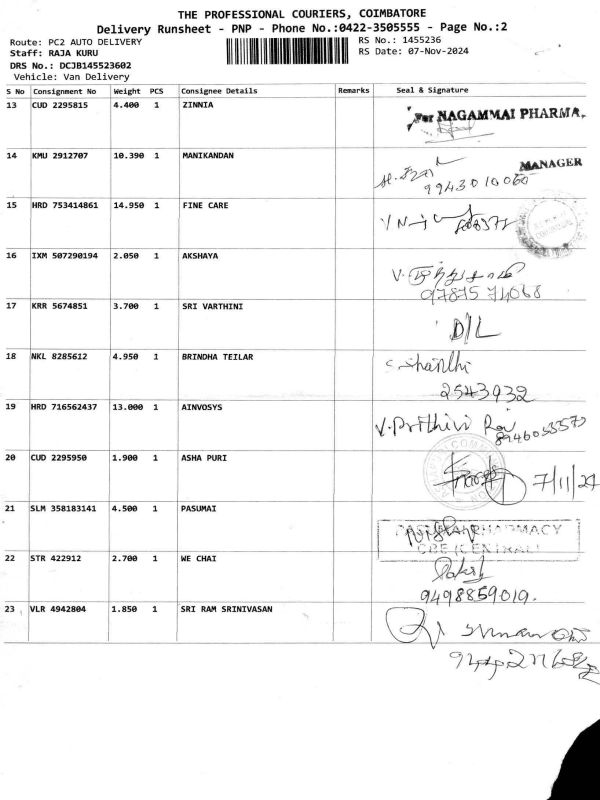 THE PROFESSIONAL COURIERS, COIMBATORE
Delivery Runsheet - PNP - Phone No.:0422-3505555 - Page No.:2
Route: PC2 AUTO DELIVERY
RS No.: 1455236
Staff: RAJA KURU
RS Date: 07-Nov-2024
DRS No.: DCJB145523602
Vehicle: Van Delivery
S No Consignment No Weight PCS Consignee Details Remarks Seal & Signature
13 CUD 2295815 4.400 1 ZINNIA
For NAGAMMAI PHARMA.
14 KMU 2912707 10.390 1 MANIKANDAN
MANAGER
15 HRD 753414861 14.950 1 FINE CARE
16 IXM 507290194 2.050 1 AKSHAYA
17 KRR 5674851 3.700 1 SRI VARTHINI
D/L
18 NKL 8285612 4.950 1 BRINDHA TEILAR
S. Shanthi
2543932
19 HRD 716562437 13.000 1 AINVOSYS
V. Prithivi Raj
20 CUD 2295950 1.900 1 ASHA PURI
7/11/24
21 SLM 358183141 4.500 1 PASUMAI
PHARMACY
CBE (CENTRAL)
22 STR 422912 2.700 1 WE CHAI
9498859019.
23 VLR 4942804 1.850 1 SRI RAM SRINIVASAN